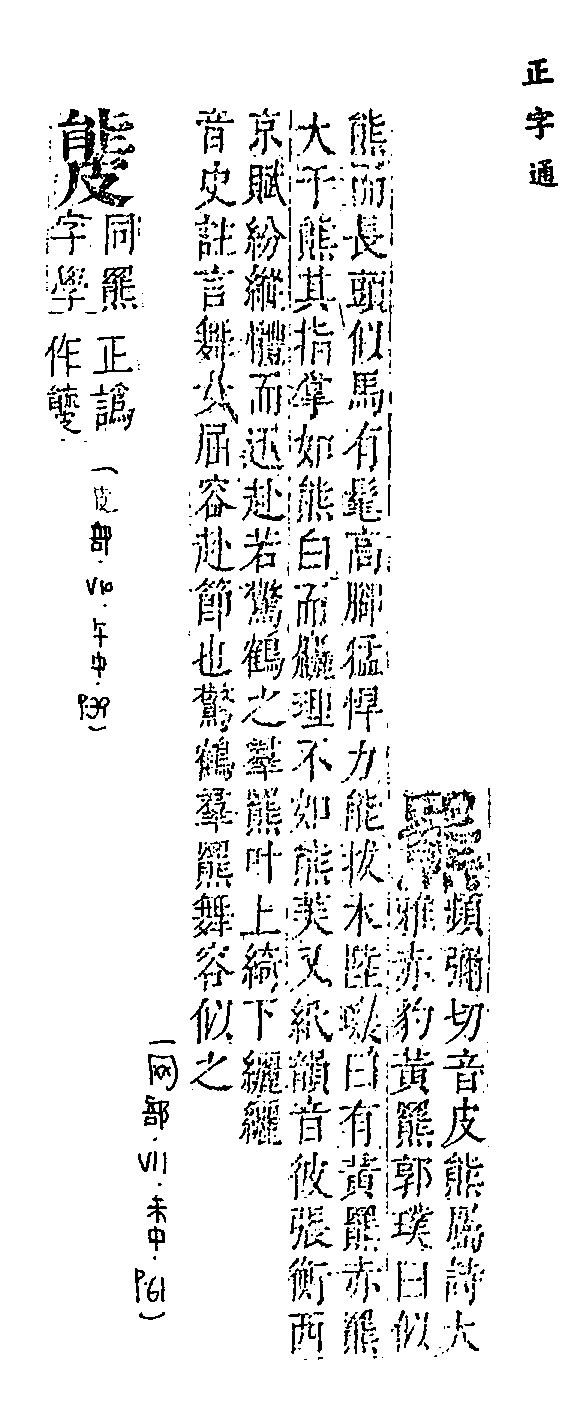 正字通
羆
頻彌切音皮熊屬詩大
雅赤豹黃羆郭璞曰似
熊而長頭似馬有髦高腳猛悍力能拔木陸璣曰有黃羆赤羆
大于熊其指掌如熊白而麤理不如熊美又紙韻音彼張衡西
京賦紛縱體而迅赴若驚鶴之羣羆叶上綺下纚纚
音史註言舞女屈容赴節也驚鶴羣羆舞容似之
(网部．VII．未中．P.61)
同羆正譌
字學作
(皮部．午中．P.39)